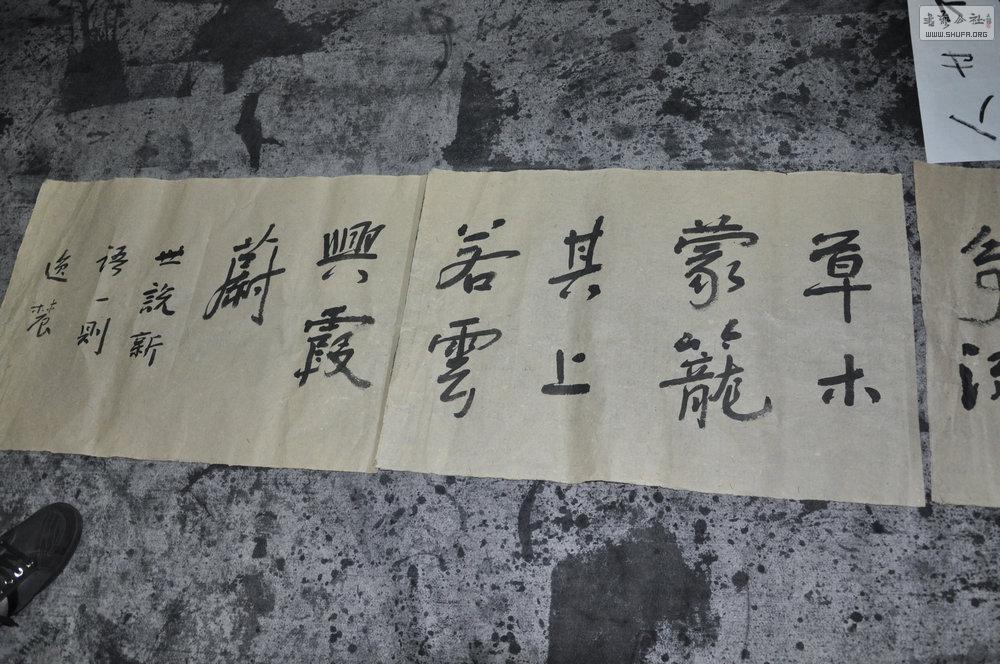 草木
蒙籠
其上
若雲
興霞
蔚
世說新
語一則
WWW.SHUFA.ORG